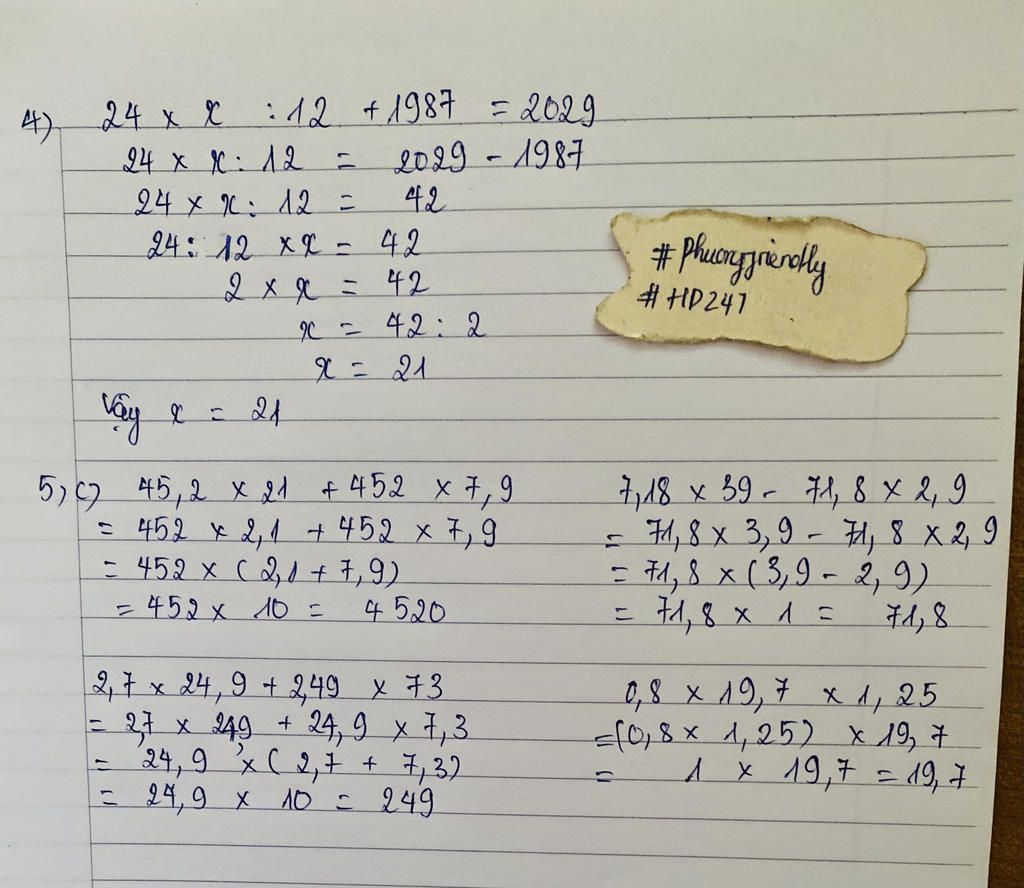 4) 24 × x : 12 + 1987 = 2029
24 × x : 12 = 2029 - 1987
24 × x : 12 = 42
24 : 12 × x = 42
2 × x = 42
x = 42 : 2
x = 21
Vậy x = 21
# Phuongfriendly
# HD247
5, c) 45,2 × 21 + 452 × 7,9
= 452 × 2,1 + 452 × 7,9
= 452 × (2,1 + 7,9)
= 452 × 10 = 4520
7,18 × 39 - 71,8 × 2,9
= 71,8 × 3,9 - 71,8 × 2,9
= 71,8 × (3,9 - 2,9)
= 71,8 × 1 = 71,8
2,7 × 24,9 + 2,49 × 73
= 2,7 × 24,9 + 24,9 × 7,3
= 24,9 × (2,7 + 7,3)
= 24,9 × 10 = 249
0,8 × 19,7 × 1,25
= (0,8 × 1,25) × 19,7
= 1 × 19,7 = 19,7